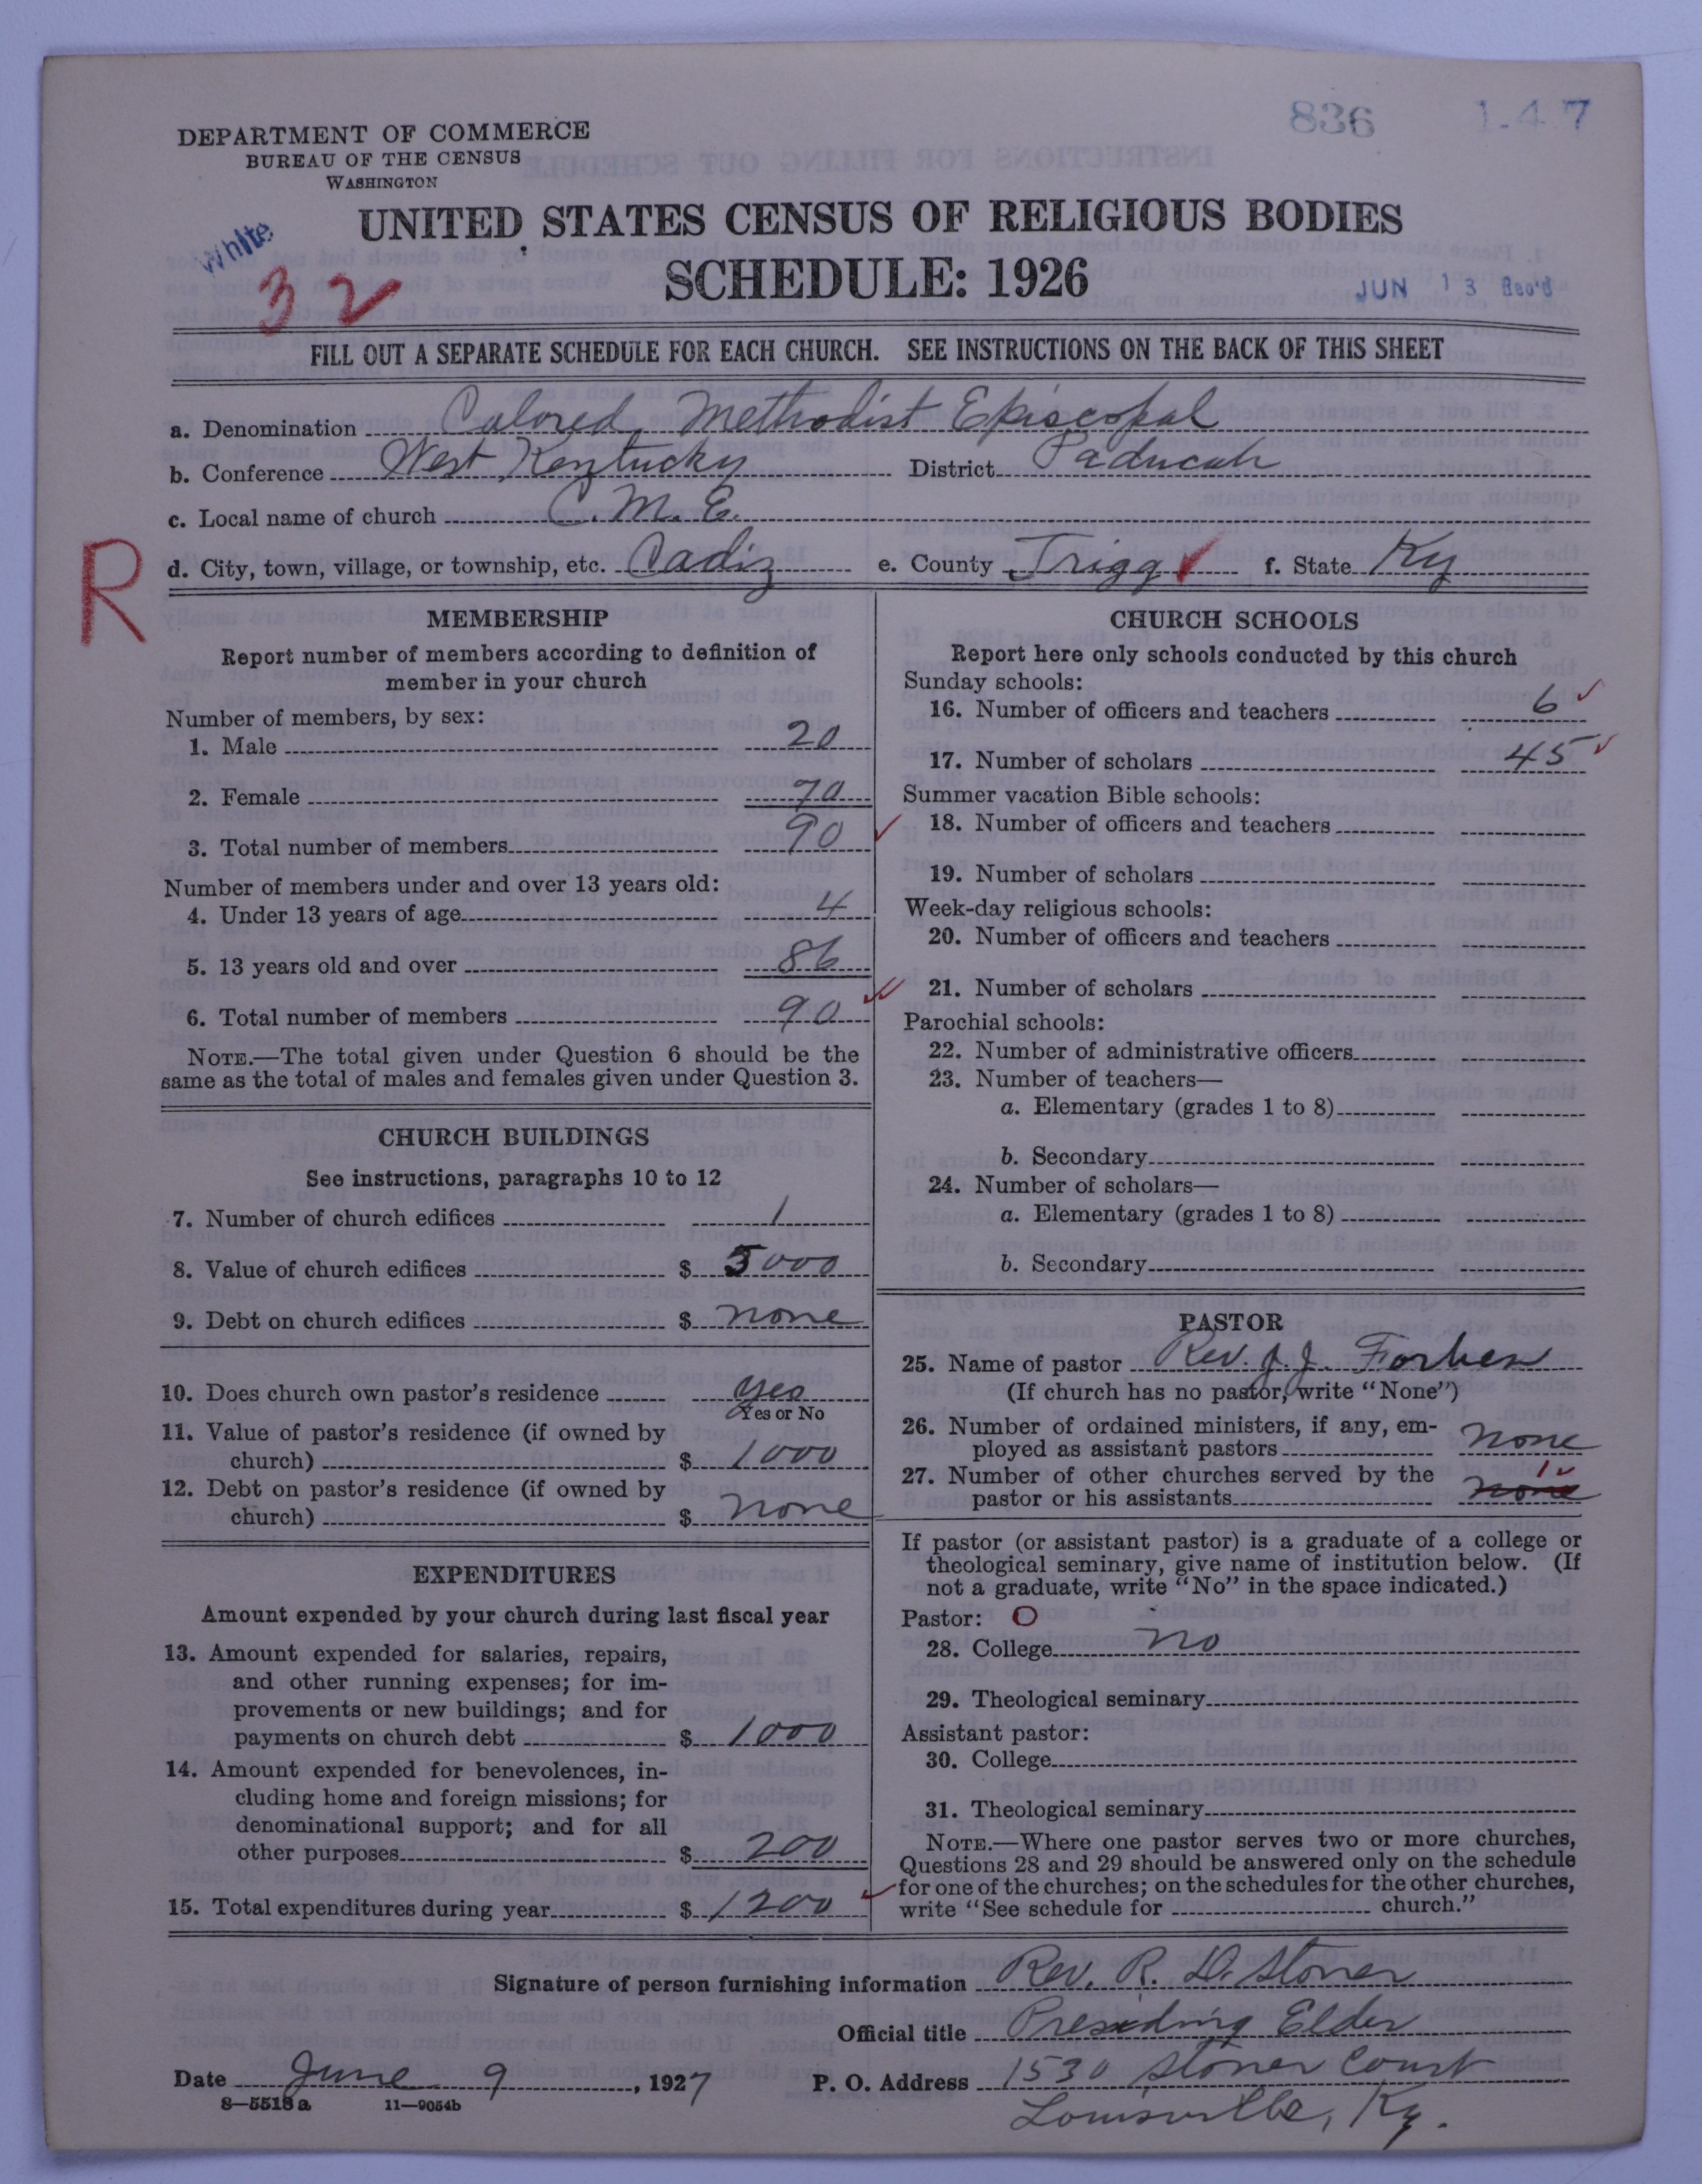 836 1-4 7
DEPARTMENT OF COMMERCE
BUREAU OF THE CENSUS
WASHINGTON
UNITED STATES CENSUS OF RELIGIOUS BODIES
White
SCHEDULE: 1926
32
JUN 13 Rec'd
FILL OUT A SEPARATE SCHEDULE FOR EACH CHURCH. SEE INSTRUCTIONS ON THE BACK OF THIS SHEET
a. Denomination Colored Methodist Episcopal
b. Conference West Kentucky District Paducah
c. Local name of church C. M. E.
R
d. City, town, village, or township, etc. Cadiz e. County Trigg f. State Ky
MEMBERSHIP
Report number of members according to definition of
member in your church
Number of members, by sex:
1. Male 20
2. Female 70
3. Total number of members 90
Number of members under and over 13 years old:
4. Under 13 years of age 4
5. 13 years old and over 86
6. Total number of members 90
NOTE.—The total given under Question 6 should be the
same as the total of males and females given under Question 3.
CHURCH BUILDINGS
See instructions, paragraphs 10 to 12
7. Number of church edifices 1
8. Value of church edifices $ 5000
9. Debt on church edifices $ none
10. Does church own pastor's residence yes
Yes or No
11. Value of pastor's residence (if owned by
church) $ 1000
12. Debt on pastor's residence (if owned by
church) $ none
EXPENDITURES
Amount expended by your church during last fiscal year
13. Amount expended for salaries, repairs,
and other running expenses; for im-
provements or new buildings; and for
payments on church debt $ 1000
14. Amount expended for benevolences, in-
cluding home and foreign missions; for
denominational support; and for all
other purposes $ 200
15. Total expenditures during year $ 1200
CHURCH SCHOOLS
Report here only schools conducted by this church
Sunday schools:
16. Number of officers and teachers 6
17. Number of scholars 45
Summer vacation Bible schools:
18. Number of officers and teachers
19. Number of scholars
Week-day religious schools:
20. Number of officers and teachers
21. Number of scholars
Parochial schools:
22. Number of administrative officers
23. Number of teachers—
a. Elementary (grades 1 to 8)
b. Secondary
24. Number of scholars—
a. Elementary (grades 1 to 8)
b. Secondary
PASTOR
25. Name of pastor Rev. J. J. Forbes
(If church has no pastor, write "None")
26. Number of ordained ministers, if any, em-
ployed as assistant pastors none
27. Number of other churches served by the 1
pastor or his assistants none
If pastor (or assistant pastor) is a graduate of a college or
theological seminary, give name of institution below. (If
not a graduate, write "No" in the space indicated.)
Pastor: O
28. College no
29. Theological seminary
Assistant pastor:
30. College
31. Theological seminary
NOTE.—Where one pastor serves two or more churches,
Questions 28 and 29 should be answered only on the schedule
for one of the churches; on the schedules for the other churches,
write "See schedule for church."
Signature of person furnishing information Rev. R. D. Stoner
Official title Presiding Elder
Date June 9, 1927 P. O. Address 1530 Stoner Court
8—5518a 11—9054b
Louisville, Ky.